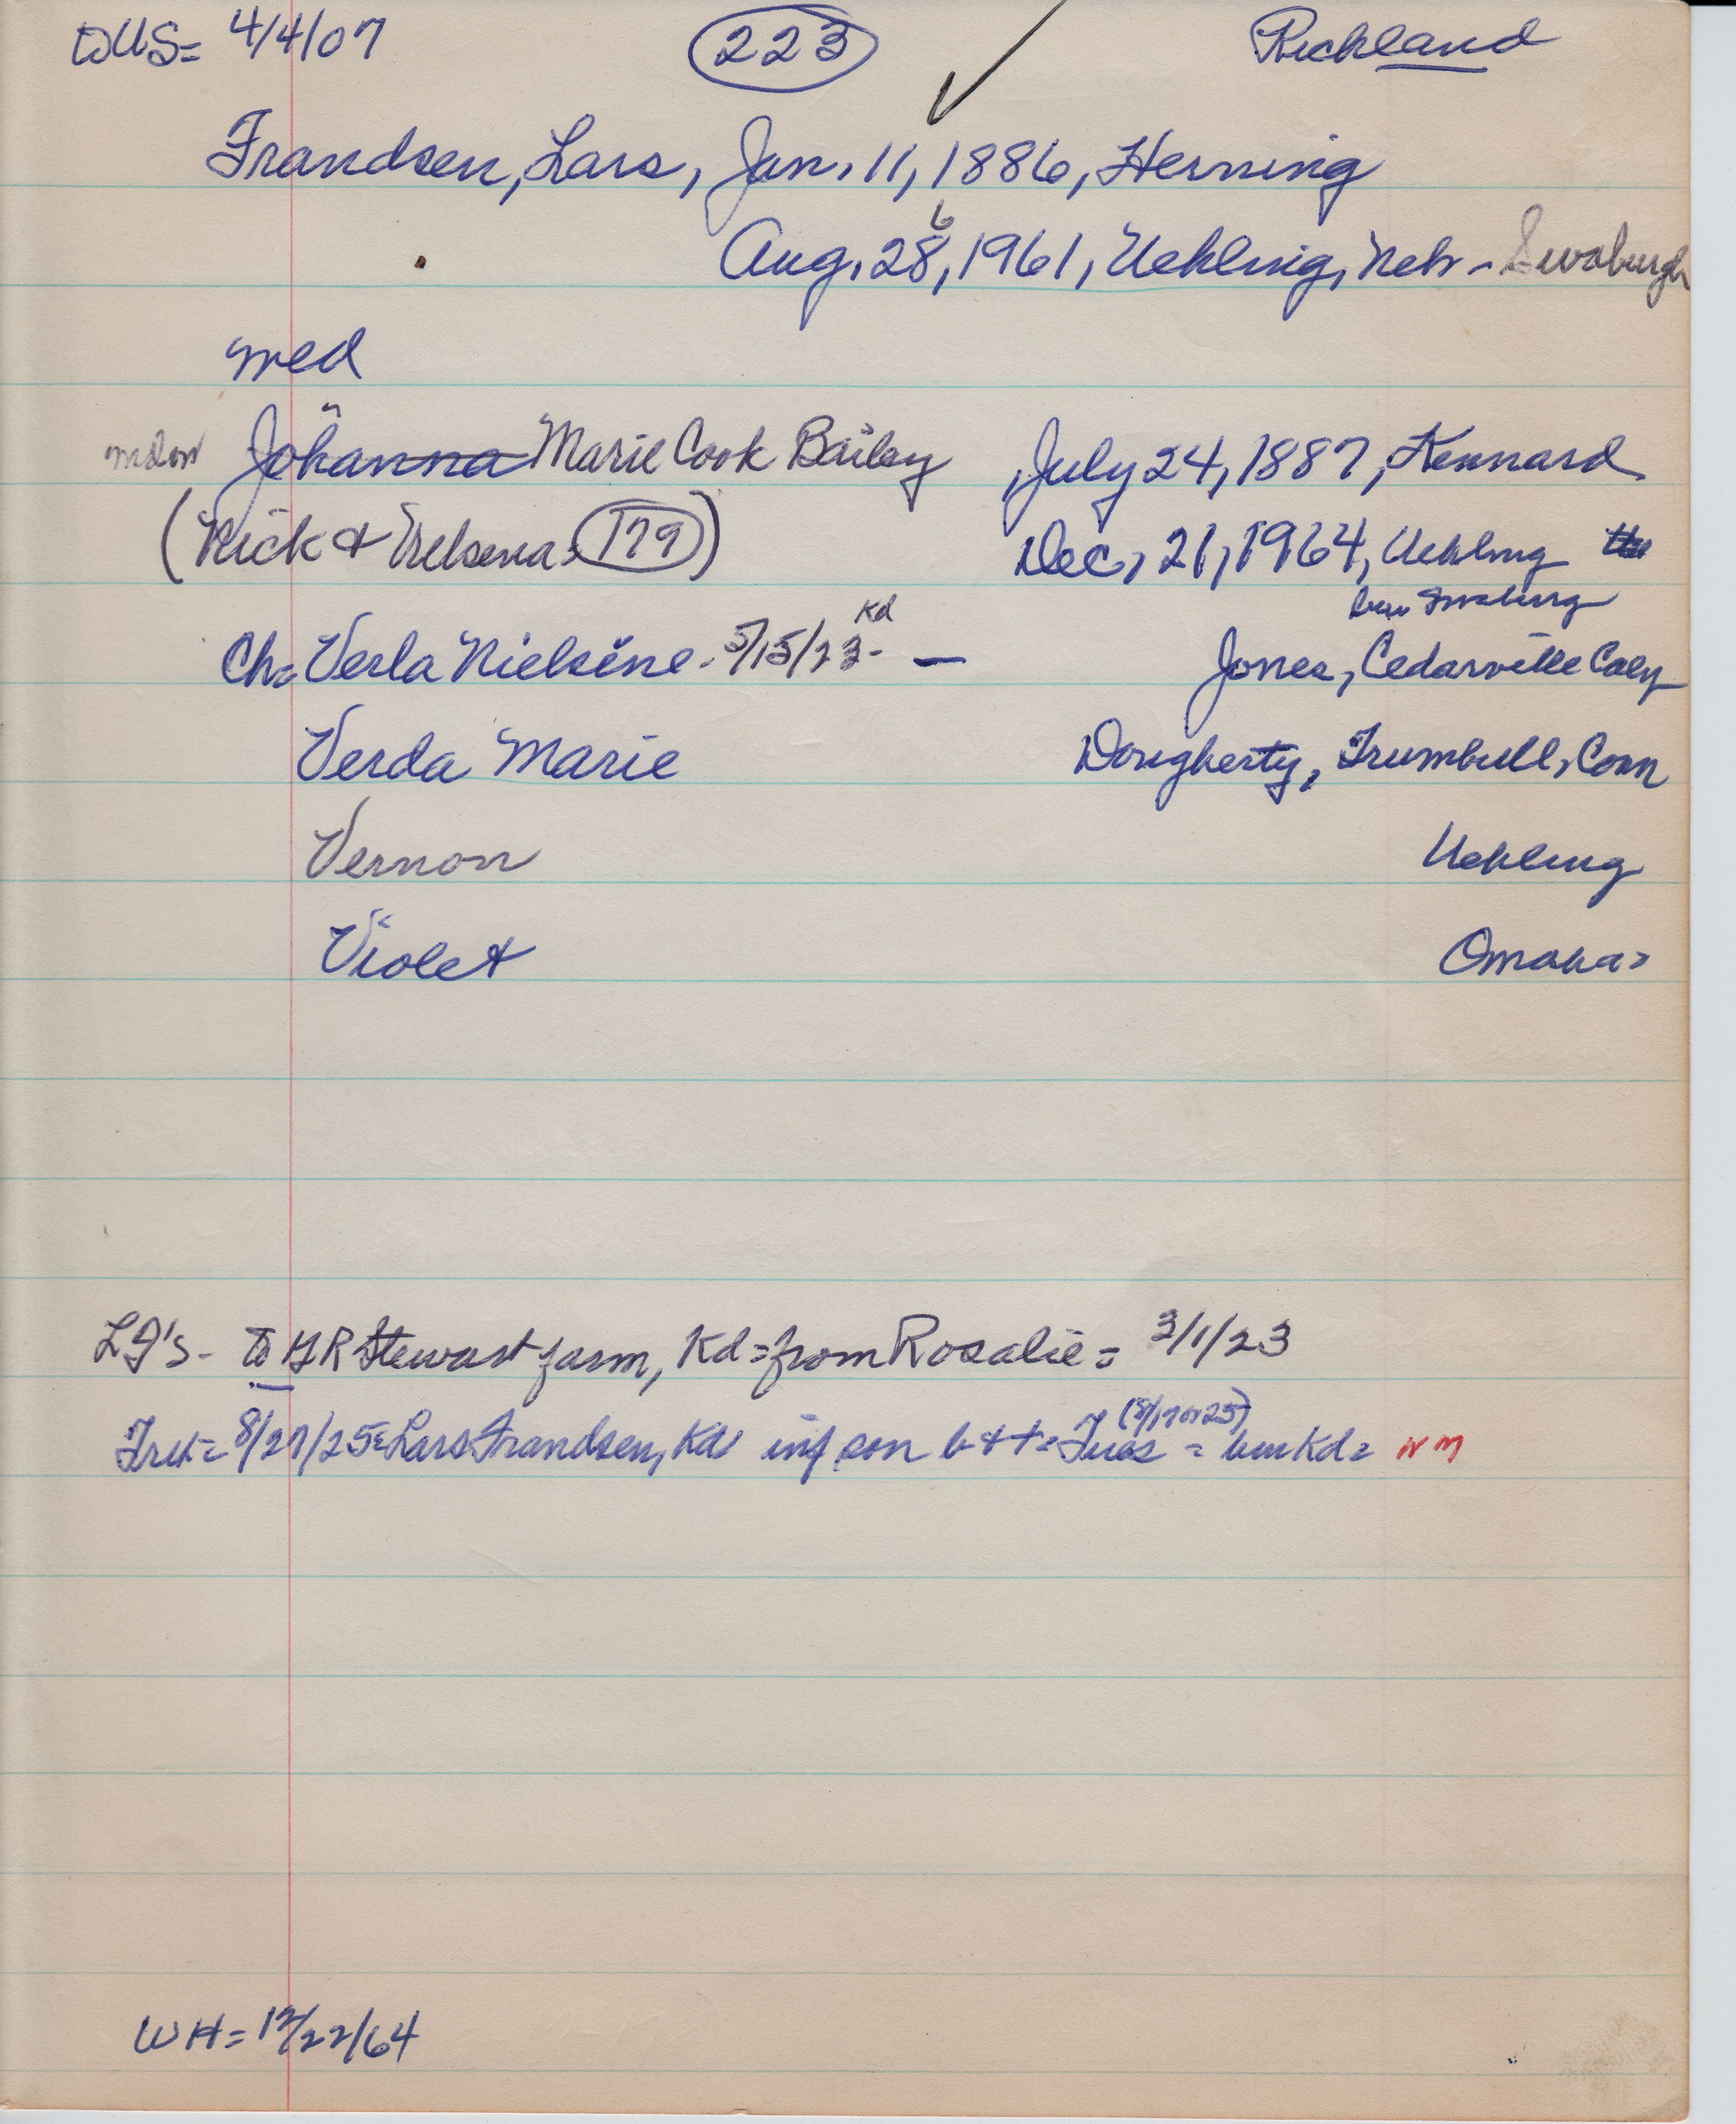 toUS= 4/4/07 223 Richland
Frandsen, Lars, Jan. 11, 1886, Herning
b
Aug. 28, 1961, Uehling, Neb - Swaburgh
med
Johanna Marie Cook Bailey , July 24, 1887, Kennard
(Nick & Nielsena 179) Dec, 21, 1964, Uehling
bur Swaburg
Kd
Ch= Verla Nielsine - 5/15/23 - — Jones, Cedarville Caly
Verda Marie Dougherty, Trumbull, Conn
Vernon Uehling
Violet Omaha=
LF's - to GR Stewart farm, Kd= from Rosalie = 3/1/23
(8/17 or 25)
8/27/25= Lars Frandsen, Kd inf son b + += Tues = bur Kd=
WH= 12/22/64